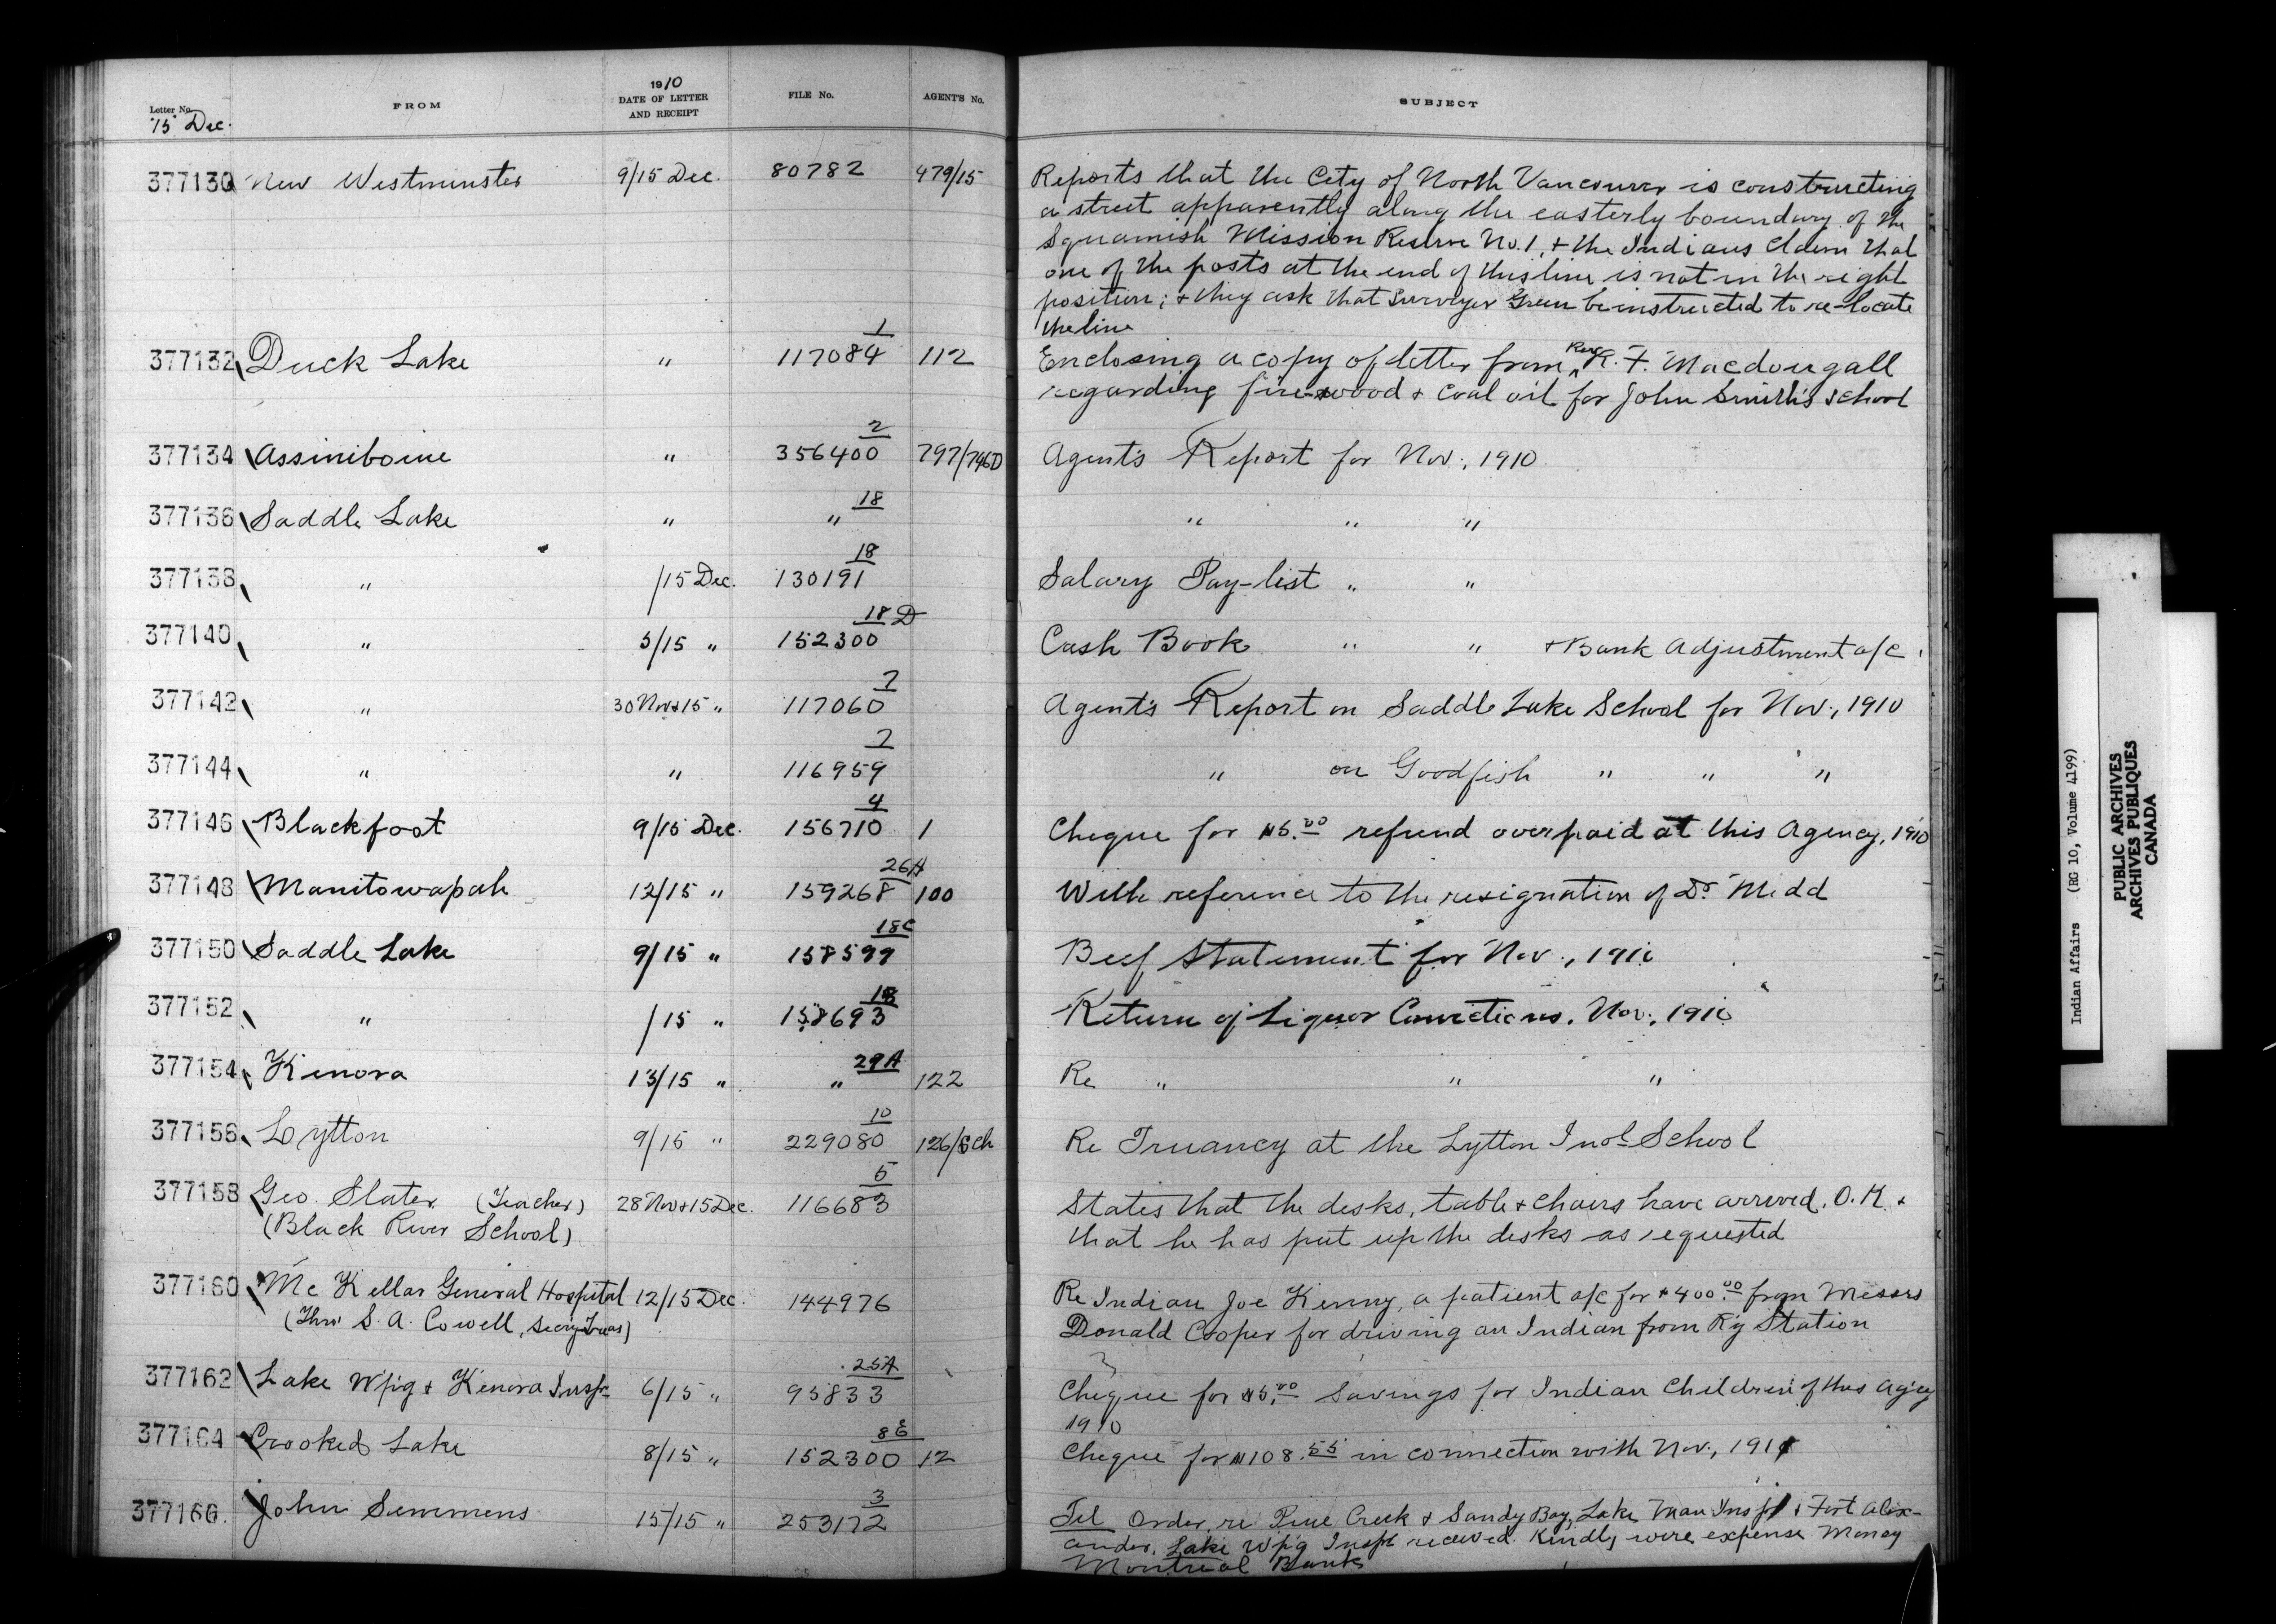 Letter No. FROM 1910 DATE OF LETTER AND RECEIPT FILE No. AGENT'S No. SUBJECT
15 Dec.
377130 New Westminster 9/15 Dec. 80782 479/15 Reports that the City of North Vancouver is constructing
a street apparently along the easterly boundary of the
Squamish Mission Reserve No. 1, + the Indians claim that
one of the posts at the end of this line is not in the right
position; + they ask that Surveyor Green be instructed to re-locate
the line
377132 Duck Lake " 117084 1 112 Enclosing a copy of letter from Rev. R. F. Macdougall
regarding fire-wood + coal oil for John Smith's school
377134 Assiniboine " 356400 2 797/746D Agent's Report for Nov., 1910
377136 Saddle Lake " " 18 " " "
377138 " /15 Dec. 130191 18 Salary Pay-list " "
377140 " 5/15 " 152300 18 D Cash Book " " + Bank Adjustment a/c.
377142 " 30 Nov + 15 " 117060 7 Agent's Report on Saddle Lake School for Nov., 1910
377144 " " 116959 7 " on Goodfish " " "
377146 Blackfoot 9/15 Dec. 156710 4 1 Cheque for $5.00 refund overpaid at this Agency, 1910
377148 Manitowapah 12/15 " 159268 26A 100 With reference to the resignation of Dr. Midd
377150 Saddle Lake 9/15 " 158599 18C Beef Statement for Nov., 1910
377152 " /15 " 158693 18 Return of Liquor Convictions. Nov., 1910
377154 Kenora 13/15 " " 29A 122 Re " " "
377156 Lytton 9/15 " 229080 10 126/Sch Re Truancy at the Lytton Indl School
377158 Geo. Slater (Teacher) 28 Nov + 15 Dec. 116683 5 States that the desks, table + chairs have arrived O.K. +
(Black River School) that he has put up the desks as requested
377160 McKellar General Hospital 12/15 Dec. 144976 Re Indian Joe Kenny, a patient a/c for $400.00 from Messrs
(Thro' S. A. Cowell, Secy Treas) Donald Cooper for driving an Indian from R'y Station
377162 Lake W'p'g + Kenora Inspt 6/15 " 95833 25A Cheque for $5.00 Savings for Indian Children of this Ag'cy
1910
377164 Crooked Lake 8/15 " 152300 8E 12 Cheque for $108.55 in connection with Nov., 191
377166 John Semmens 15/15 " 253172 3 Tel Order re Pine Creek + Sandy Bay, Lake Man Inspt + Fort Alex-
ander, Lake W'p'g Inspt received. Kindly wire expense money
Montreal Bank
Indian Affairs (RG 10, Volume 4199)
PUBLIC ARCHIVES
ARCHIVES PUBLIQUES
CANADA